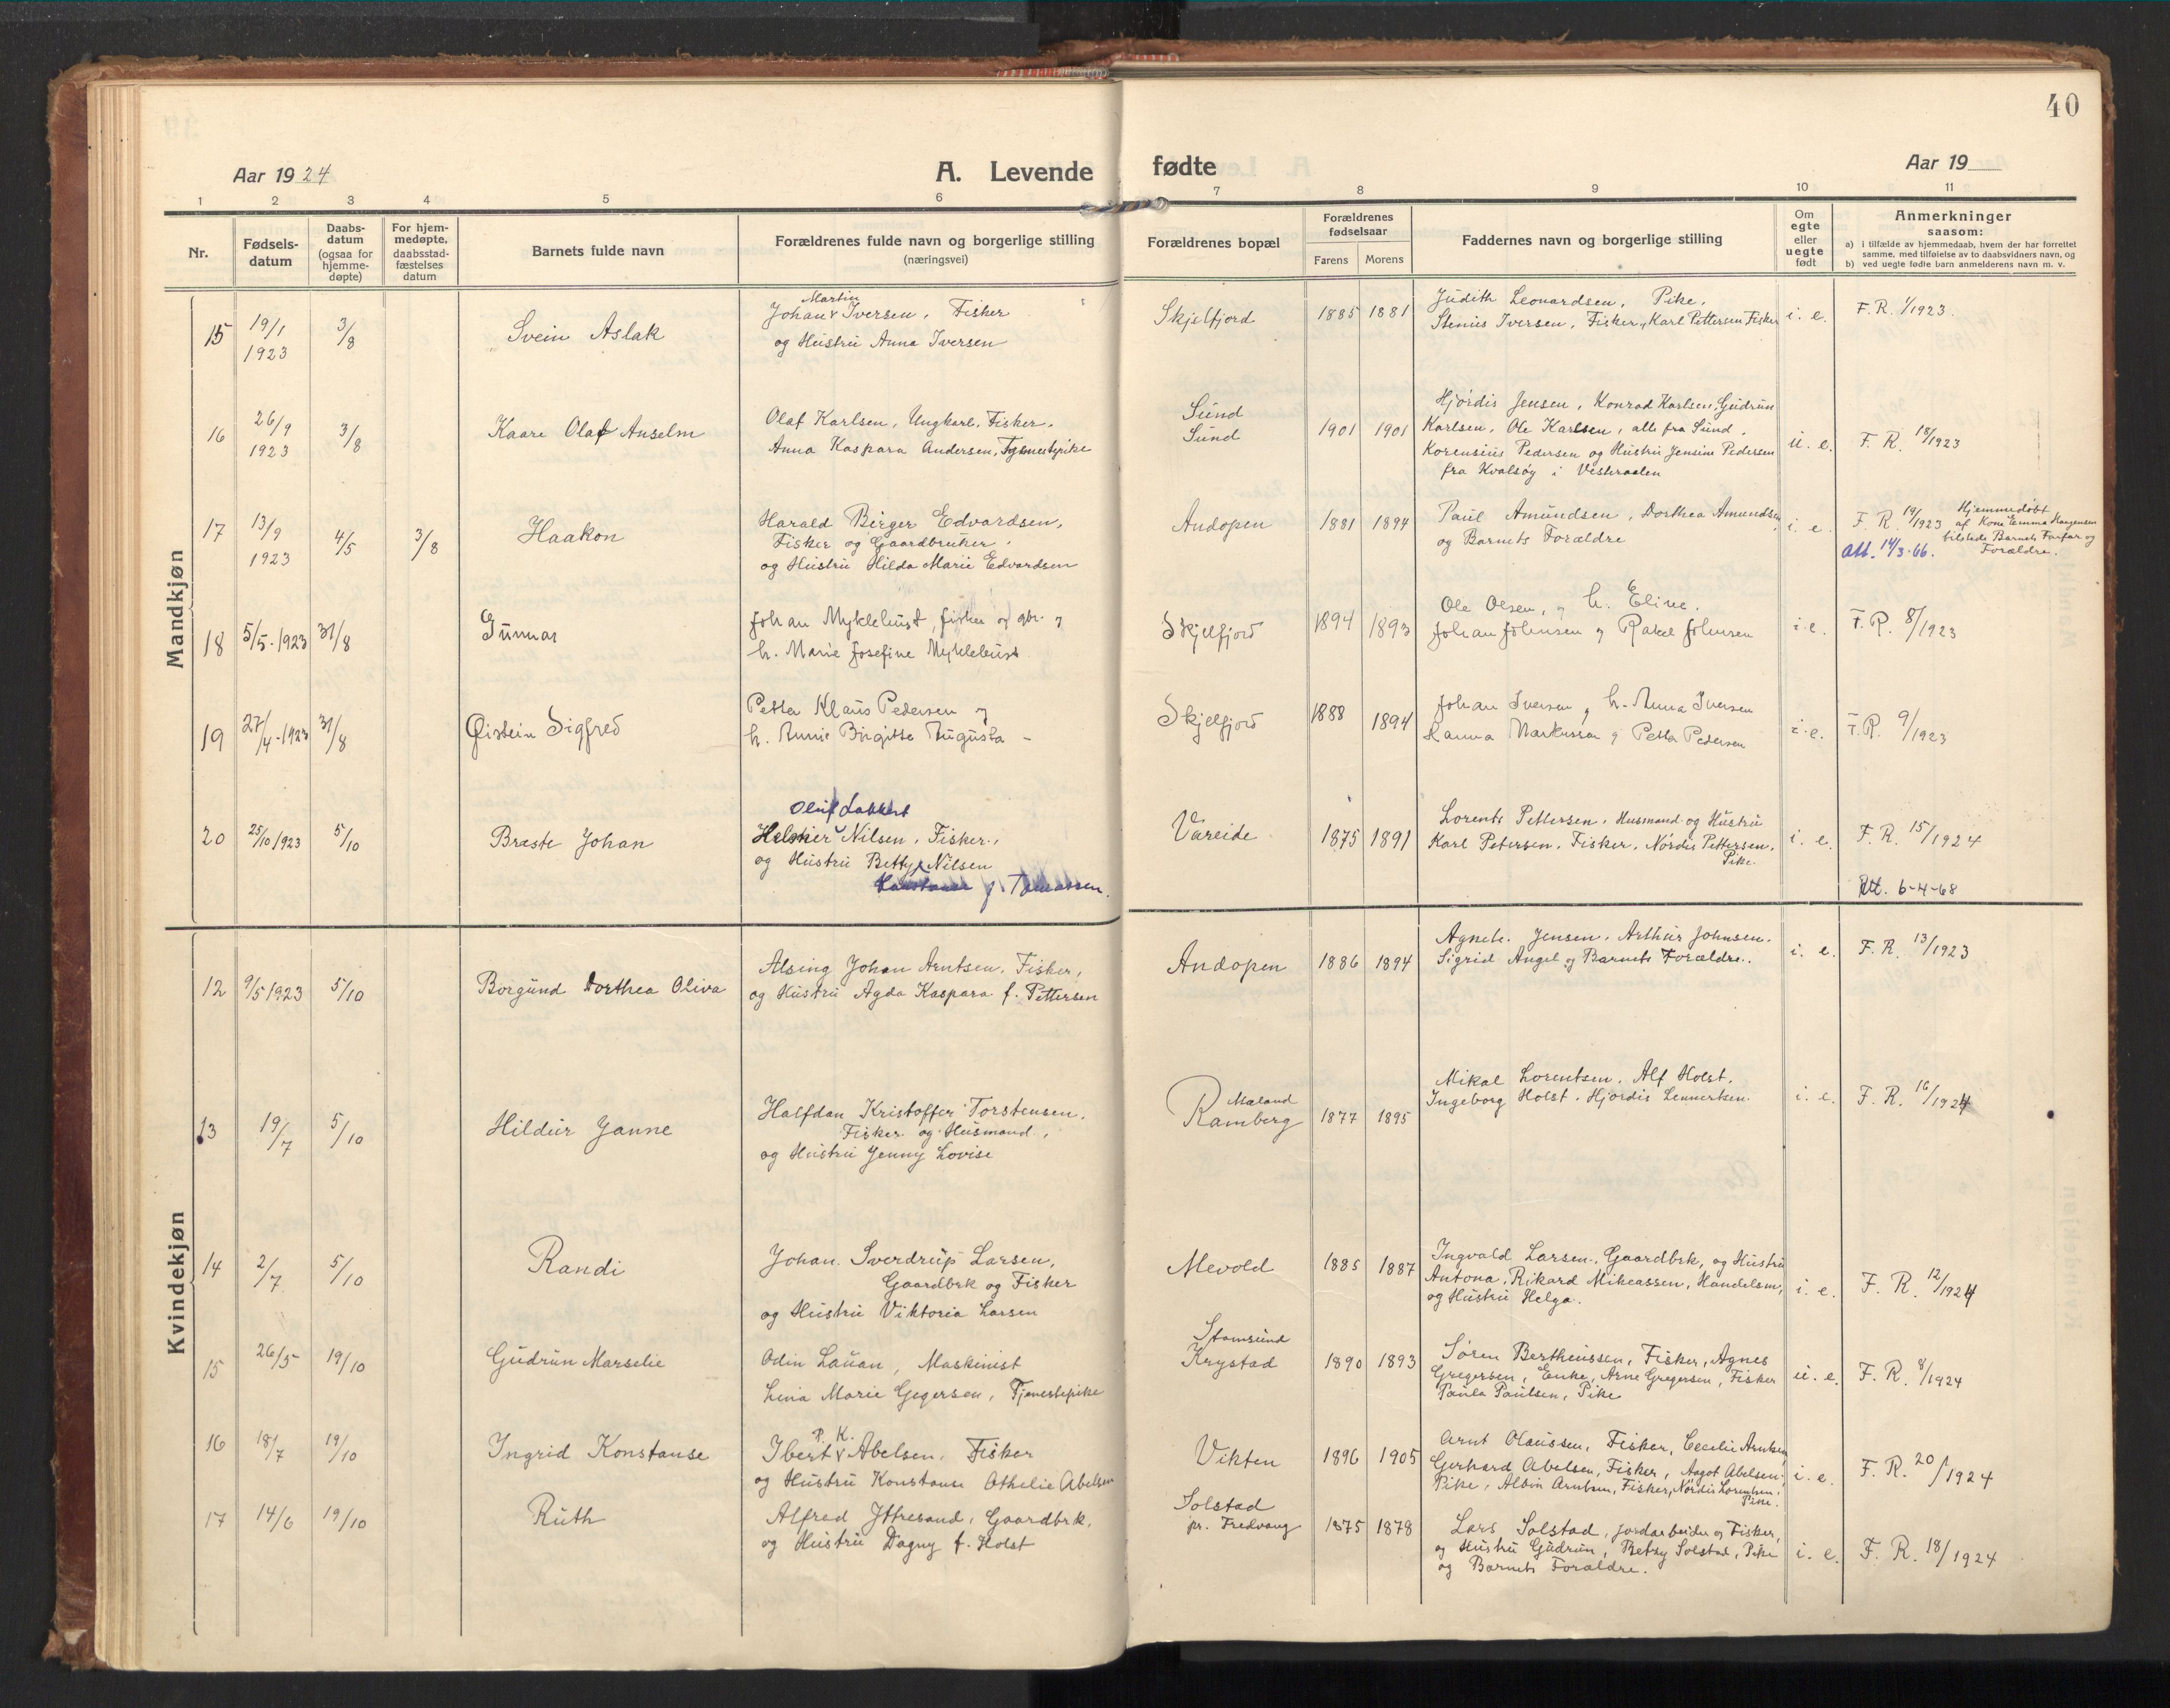 40
Aar 1924
A. Levende fødte
Aar 19
1 2 3 4 5 6 7 8 9 10 11
Nr.
Fødsels-
datum
Daabs-
datum
(ogsaa for
hjemme-
døpte)
For hjem-
medøpte,
daabsstad-
fæstelses
datum
Barnets fulde navn
Forældrenes fulde navn og borgerlige stilling
(næringsvei)
Forældrenes bopæl
Forældrenes
fødselsaar
Farens Morens
Faddernes navn og borgerlige stilling
Om
egte
eller
uegte
født
Anmerkninger
saasom:
a) i tilfælde av hjemmedaab, hvem der har forrettet
samme, med tilføielse av to daabsvidners navn, og
b) ved uegte fødte barn anmelderens navn m. v.
Mandkjøn
15
19/1
1923
3/8
Svein Aslak
Martin
Johan Iversen, Fisker
og Hustru Anna Iversen
Skjelfjord
1885 1881
Judith Leonardsen, Pike,
Stenius Iversen, Fisker, Karl Pettersen Fisker
i. e.
F. R. 1/1923
16
26/9
1923
3/8
Kaare Olaf Anselm
Olaf Karlsen, Ungkarl, Fisker.
Anna Kaspara Andersen, Tjenestepike
Sund
Sund
1901 1901
Hjørdis Jensen, Konrad Karlsen, Gudrun
Karlsen, Ole Karlsen, alle fra Sund.
Korensius Pedersen og Hustru Jensine Pedersen
fra Kvalsøy i Vesteraalen
u. e.
F. R. 18/1923
17
13/9
1923
4/5
3/8
Haakon
Harald Birger Edvardsen,
Fisker og Gaardbruker.
og Hustru Hilda Marie Edvardsen
Andopen
1881 1894
Paul Amundsen, Dorthea Amundsen
og Barnets Forældre
i. e.
F. R. 19/1923
Att. 14/3-66.
Hjemmedøbt
af Kone Emma Haagensen
tilstede Barnets Farfar og
Forældre.
18
5/5-1923
31/8
Gunnar
Johan Myklebust, fisker og gbr. og
h. Marie Josefine Myklebust
Skjelfjord
1894 1893
Ole Olsen, og h. Eline.
Johan Johnsen og Rakel Johnsen
i. e.
F. R. 8/1923
19
27/4-1923
31/8
Øistein Sigfred
Petter Klaus Pedersen og
h. Annie Birgitte Augusta -
Skjelfjord
1888 1894
Johan Iversen og h. Anna Iversen
Hanna Markussen og Petter Pedersen
i. e.
F. R. 9/1923
20
25/10 1923
5/10
Braste Johan
Oluf
Helmer Nilsen, Fisker.,
og Hustru Betty Nilsen
f. Tomassen.
Vareide
1875 1891
Lorents Pettersen, Husmand og Hustru
Karl Petersen, Fisker, Nordis Pettersen,
Pike.
i. e.
F. R. 15/1924
Att. 6-4-68
Kvindekjøn
12
9/5 1923
5/10
Borgund Dorthea Oliva
Alsing Johan Arntsen, Fisker,
og Hustru Agda Kaspara f. Pettersen
Andopen
1886 1894
Agnete Jensen, Arthur Johnsen.
Sigrid Angel og Barnets Forældre.
i. e.
F. R. 13/1923
13
19/7
5/10
Hildur Janne
Halfdan Kristoffer Torstensen,
Fisker og Husmand,
og Hustru Jenny Lovise
Mæland
Ramberg
1877 1895
Mikal Lorentsen, Alf Holst,
Ingeborg Holst, Hjordis Lennertsen.
i. e.
F. R. 16/1924
14
2/7
5/10
Randi
Johan Sverdrup Larsen,
Gaardbrk og Fisker
og Hustru Viktoria Larsen
Mevold
1885 1887
Ingvald Larsen, Gaardbrk, og Hustru
Antona, Rikard Mikeassen, Handelsm,
og Hustru Helga.
i. e.
F. R. 12/1924
15
26/5
19/10
Gudrun Marselie
Odin Lauan, Maskinist
Lina Marie Gegersen, Tjenestepike
Stamsund
Krystad
1890 1893
Søren Bertheussen, Fisker, Agnes
Gregersen, Enke, Arne Gregersen, Fisker
Paula Paulsen, Pike
u. e.
F. R. 8/1924
16
18/7
19/10
Ingrid Konstanse
P. K.
Ibert Abelsen, Fisker
og Hustru Konstanse Othelie Abelsen
Vikten
1896 1905
Arnt Olaussen, Fisker, Cecelie Arntsen
Gerhard Abelsen, Fisker, Aagot Abelsen,
Pike, Albin Arntsen, Fisker, Nordis Lorentsen,
Pike.
i. e.
F. R. 20/1924
17
14/6
19/10
Ruth
Alfred Yttresand, Gaardbrk,
og Hustru Dagny f. Holst
Solstad
pr. Fredvang
1875 1878
Lars Solstad, jordarbeider og Fisker,
og Hustru Gudrun, Betzy Solstad, Pike
og Barnets Forældre.
i. e.
F. R. 18/1924